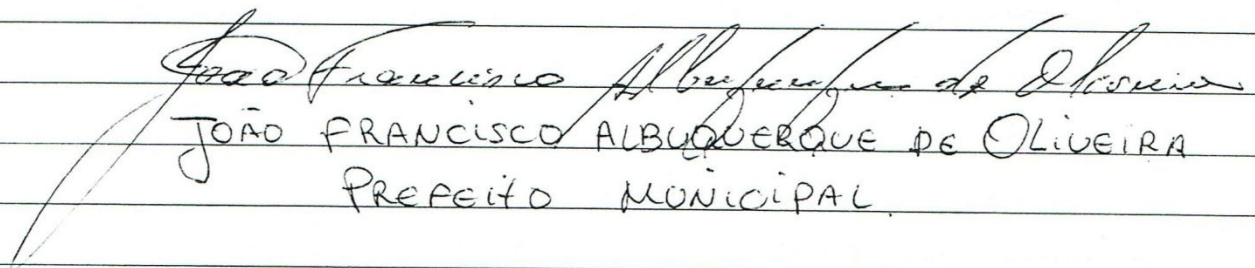 João Francisco Albuquerque de Oliveira
JOÃO FRANCISCO ALBUQUERQUE DE OLIVEIRA
PREFEITO MUNICIPAL.